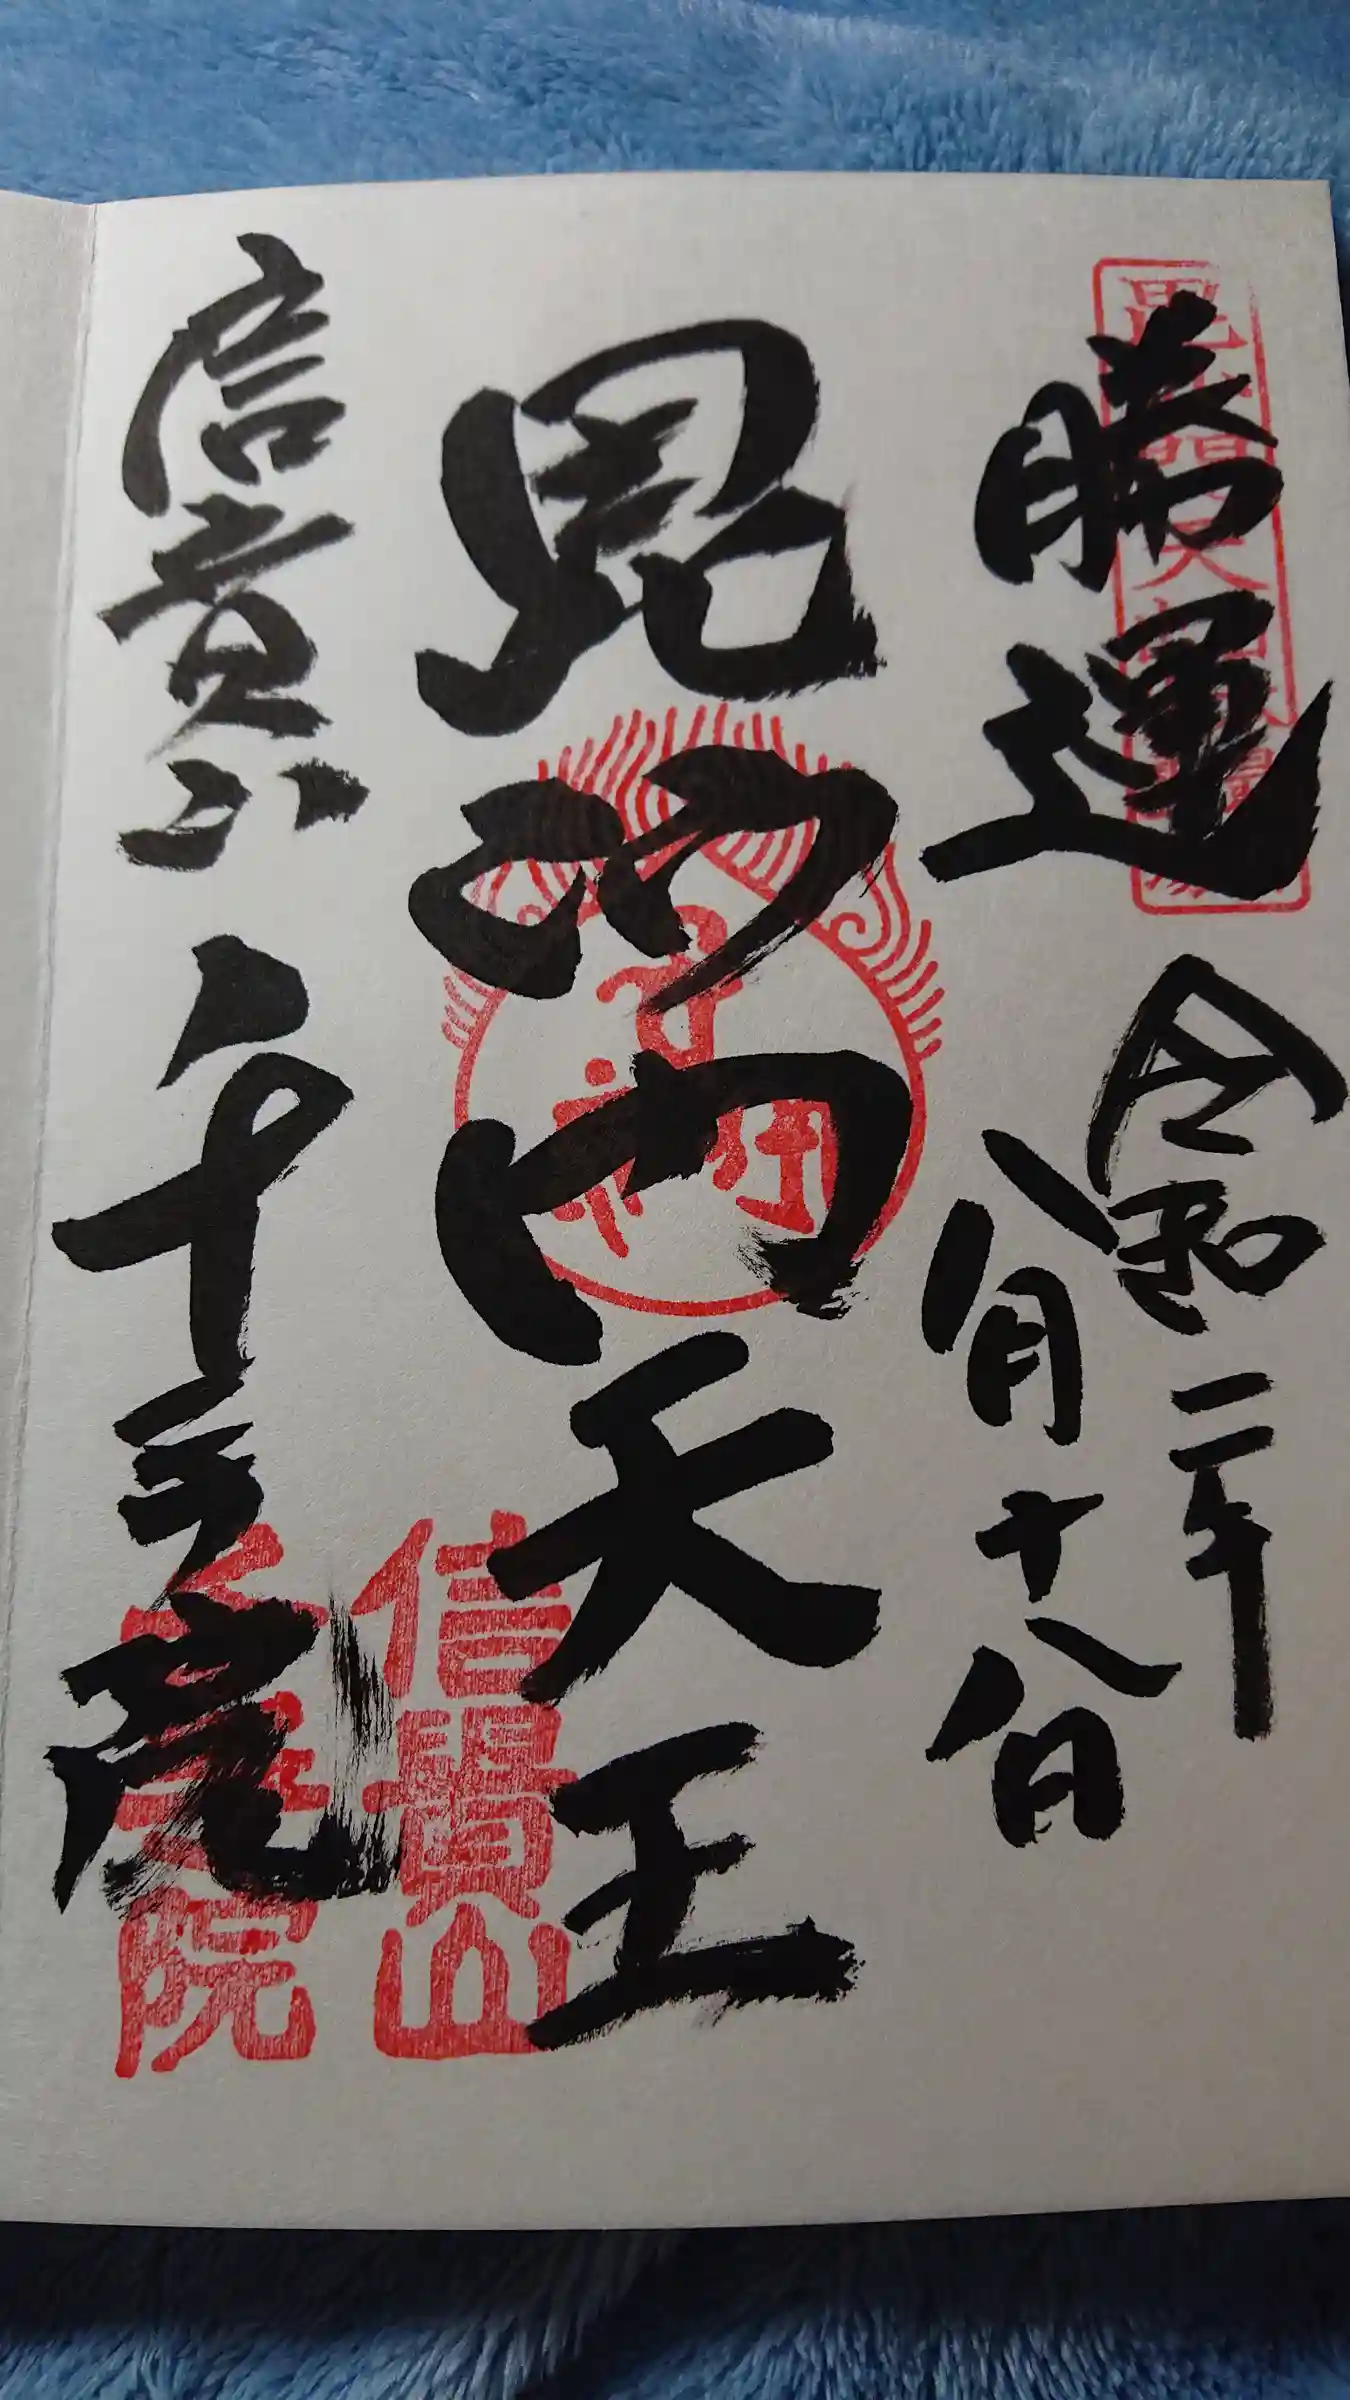 勝運
令和二年
八月十八日
毘沙門天王
信貴山
千手院
信貴山
院